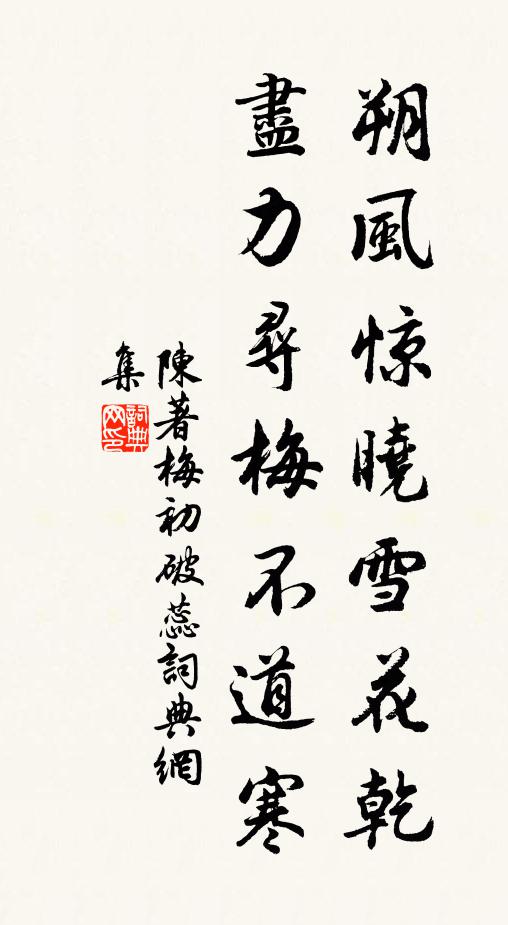 朔風惊曉雪花乾
盡力尋梅不道寒
陳著梅初破蕊詞典網
集
詞典网印